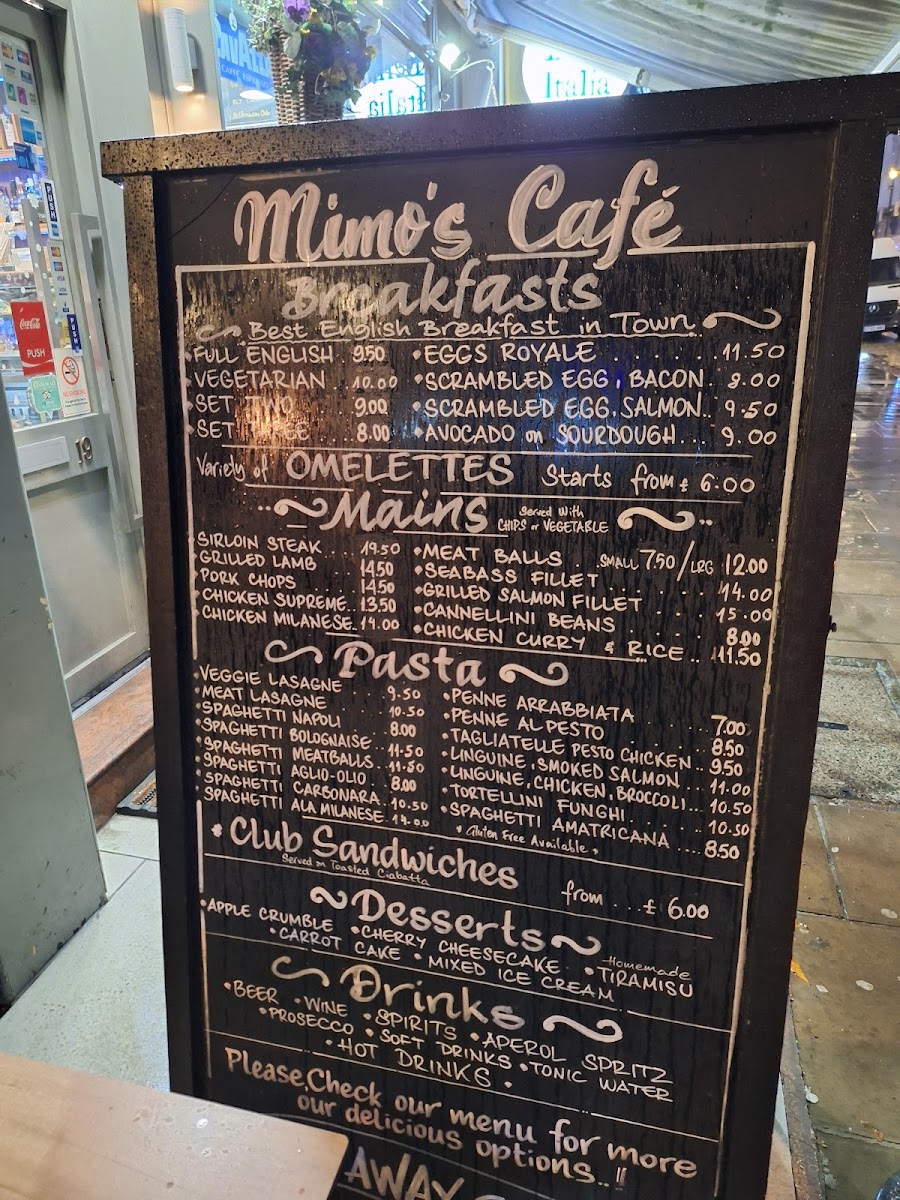 AVAZZA
CAFFÈ ESPRESSO
Italia
Italia
PUSH
Coca-Cola
PUSH
PUSH
VISA
19
Mimo's Café
Breakfasts
Best English Breakfast in Town
•FULL ENGLISH 9.50
•VEGETARIAN .. 10.00
•SET TWO 9.00
•SET THREE .. 8.00
•EGGS ROYALE . . . . . . . 11.50
•SCRAMBLED EGG, BACON . 8.00
•SCRAMBLED EGG, SALMON .. 9.50
•AVOCADO on SOURDOUGH ... 9.00
Variety of OMELETTES Starts from £ 6.00
Mains Served With CHIPS or VEGETABLE
SIRLOIN STEAK ... 19.50
GRILLED LAMB .... 14.50
PORK CHOPS .... 14.50
•CHICKEN SUPREME.. 13.50
•CHICKEN MILANESE. 14.00
•MEAT BALLS .. SMALL 7.50/LRG 12.00
•SEABASS FILLET . . . . . 14.00
•GRILLED SALMON FILLET . . 15.00
•CANNELLINI BEANS . . . . 8.00
•CHICKEN CURRY & RICE .. 11.50
Pasta
•VEGGIE LASAGNE 9.50
•MEAT LASAGNE .... 10.50
•SPAGHETTI NAPOLI 8.00
•SPAGHETTI BOLOGNAISE .. 11.50
•SPAGHETTI MEATBALLS .. 11.50
•SPAGHETTI AGLIO-OLIO .. 8.00
•SPAGHETTI CARBONARA . 10.50
SPAGHETTI ALA MILANESE . 14.00
•PENNE ARRABBIATA . . . . 7.00
•PENNE AL PESTO . . . . . 8.50
•TAGLIATELLE PESTO CHICKEN .. 9.50
•LINGUINE, SMOKED SALMON ... 11.00
•LINGUINE, CHICKEN, BROCCOLI... 10.50
•TORTELLINI FUNGHI . . . . . 10.50
•SPAGHETTI AMATRICANA .... 8.50
* Gluten Free Available *
• Club Sandwiches
Served on Toasted Ciabatta
from ... £ 6.00
Desserts
•APPLE CRUMBLE •CHERRY CHEESECAKE •Homemade TIRAMISU
•CARROT CAKE •MIXED ICE CREAM
Drinks
•BEER •WINE •SPIRITS •APEROL SPRITZ
•PROSECCO •SOFT DRINKS •TONIC WATER
•HOT DRINKS •
Please, Check our menu for more
our delicious options..!!
AWAY